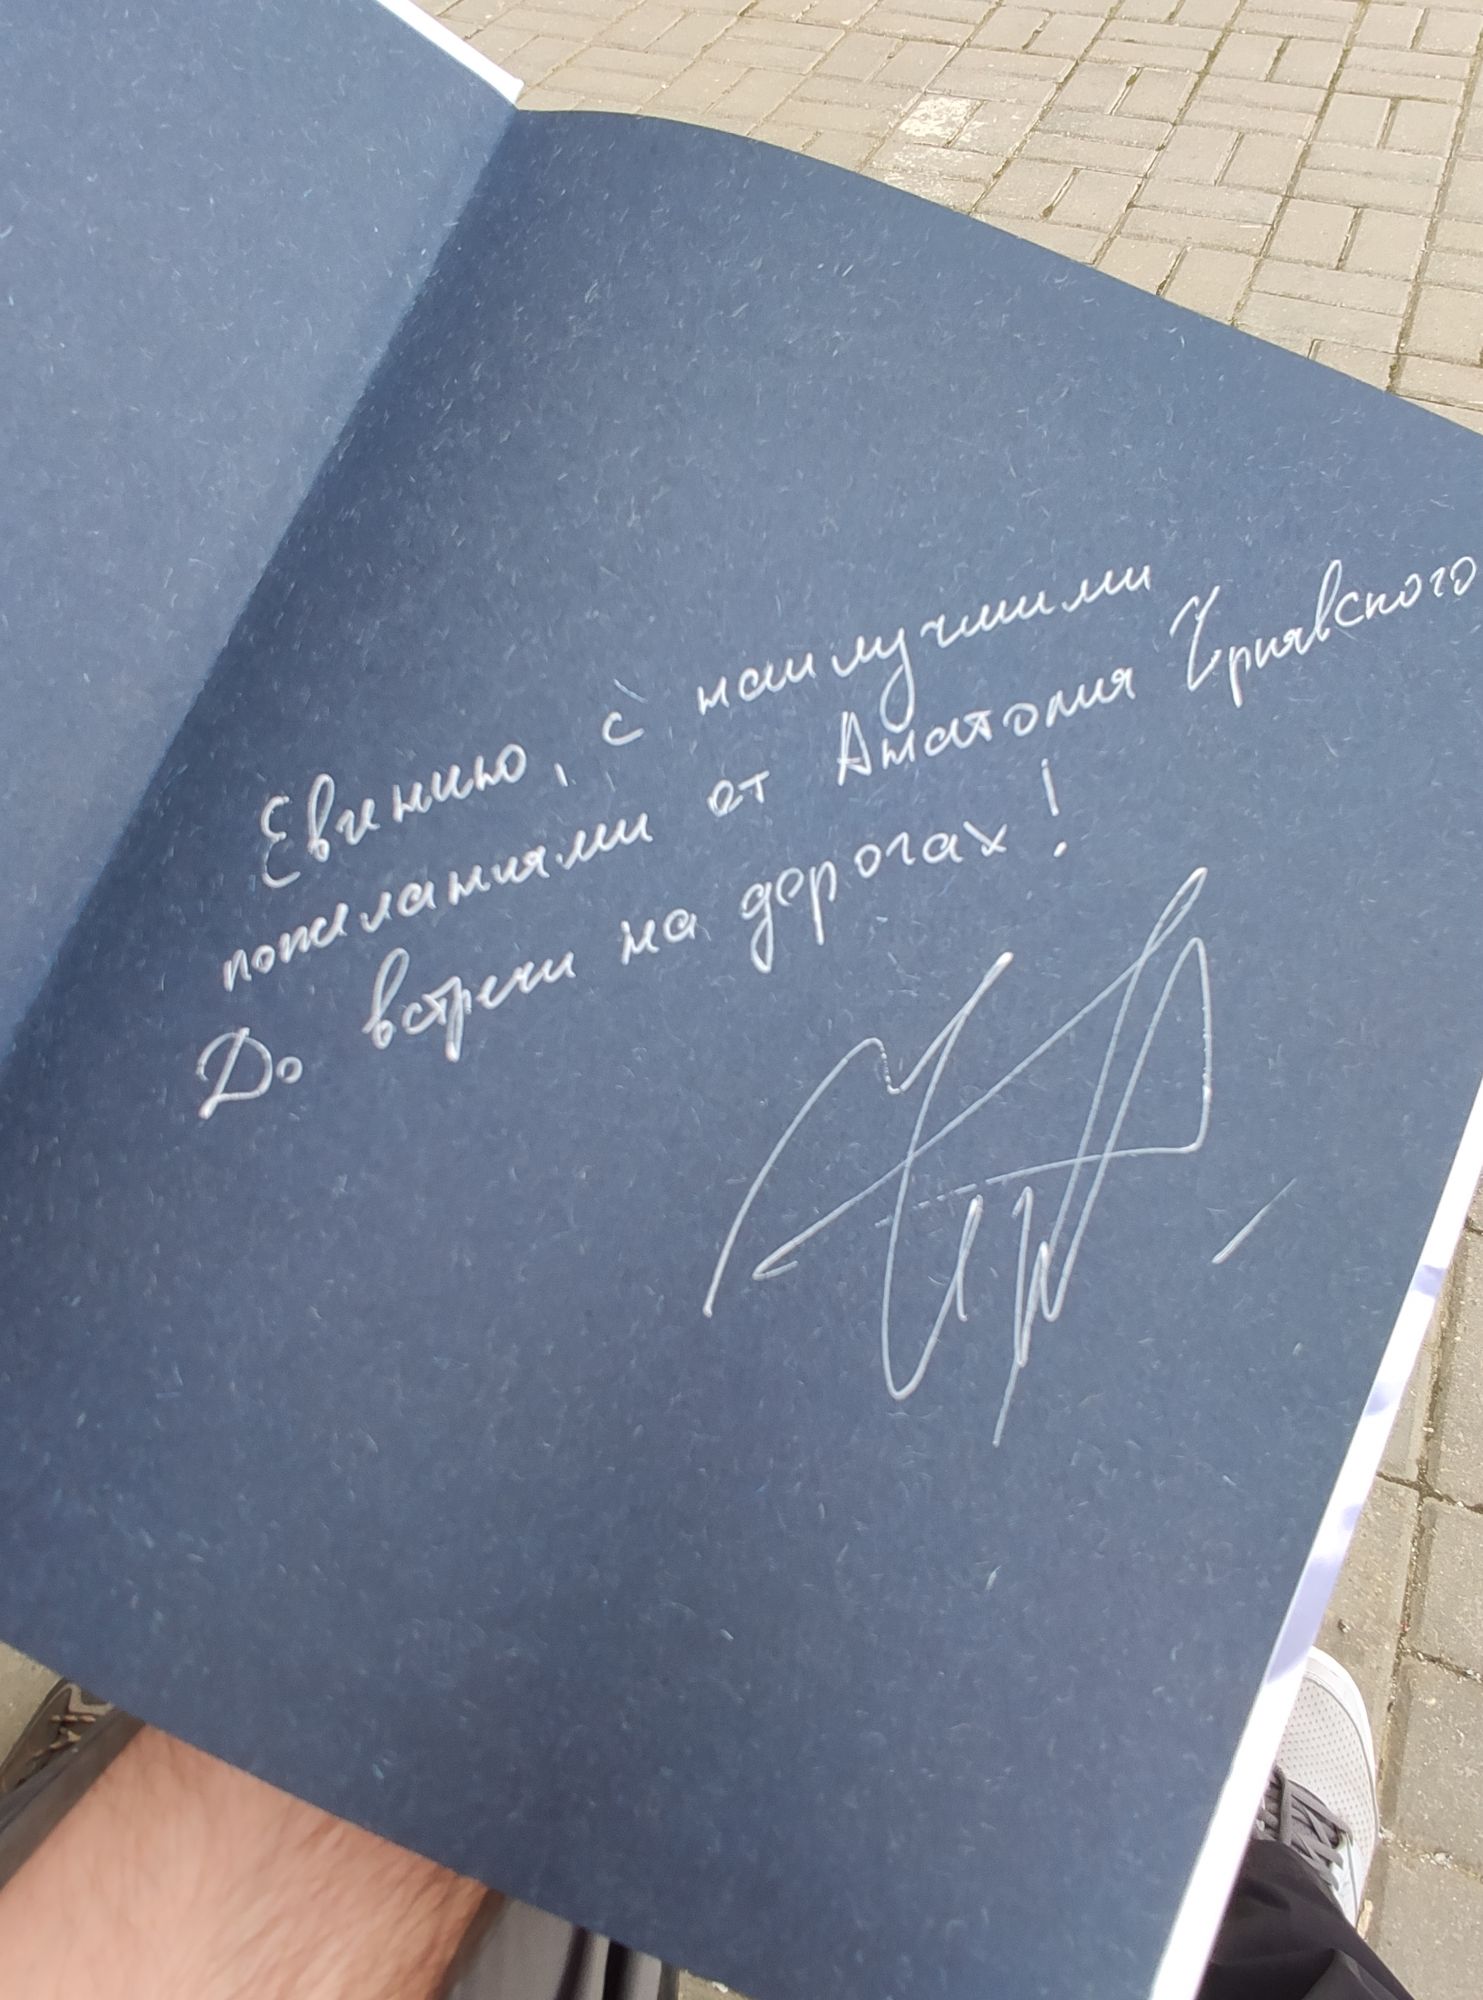 Евгению, с наилучшими
пожеланиями от Анатолия Чрнявского
До встречи на дорогах!